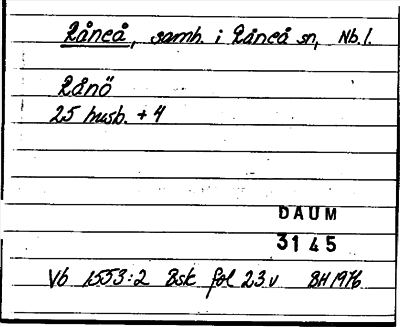 Råneå, samh. i Råneå sn, Nb.l.
Rånö
25 husb. + 4
DAUM
3145
Vb 1553:2 Bsk fol 23v BH 1976